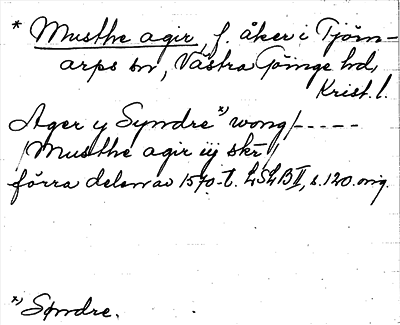 * Musthe agir, f. åker i Tjörn-
arps sn, Västra Göinge hd,
Krist. l.
Ager y Syndre *) wong / - - - - -
/ Musthe agir iij skr /
förra delen av 1570-t. LSLB II, s. 120. orig.
*) Søndre.